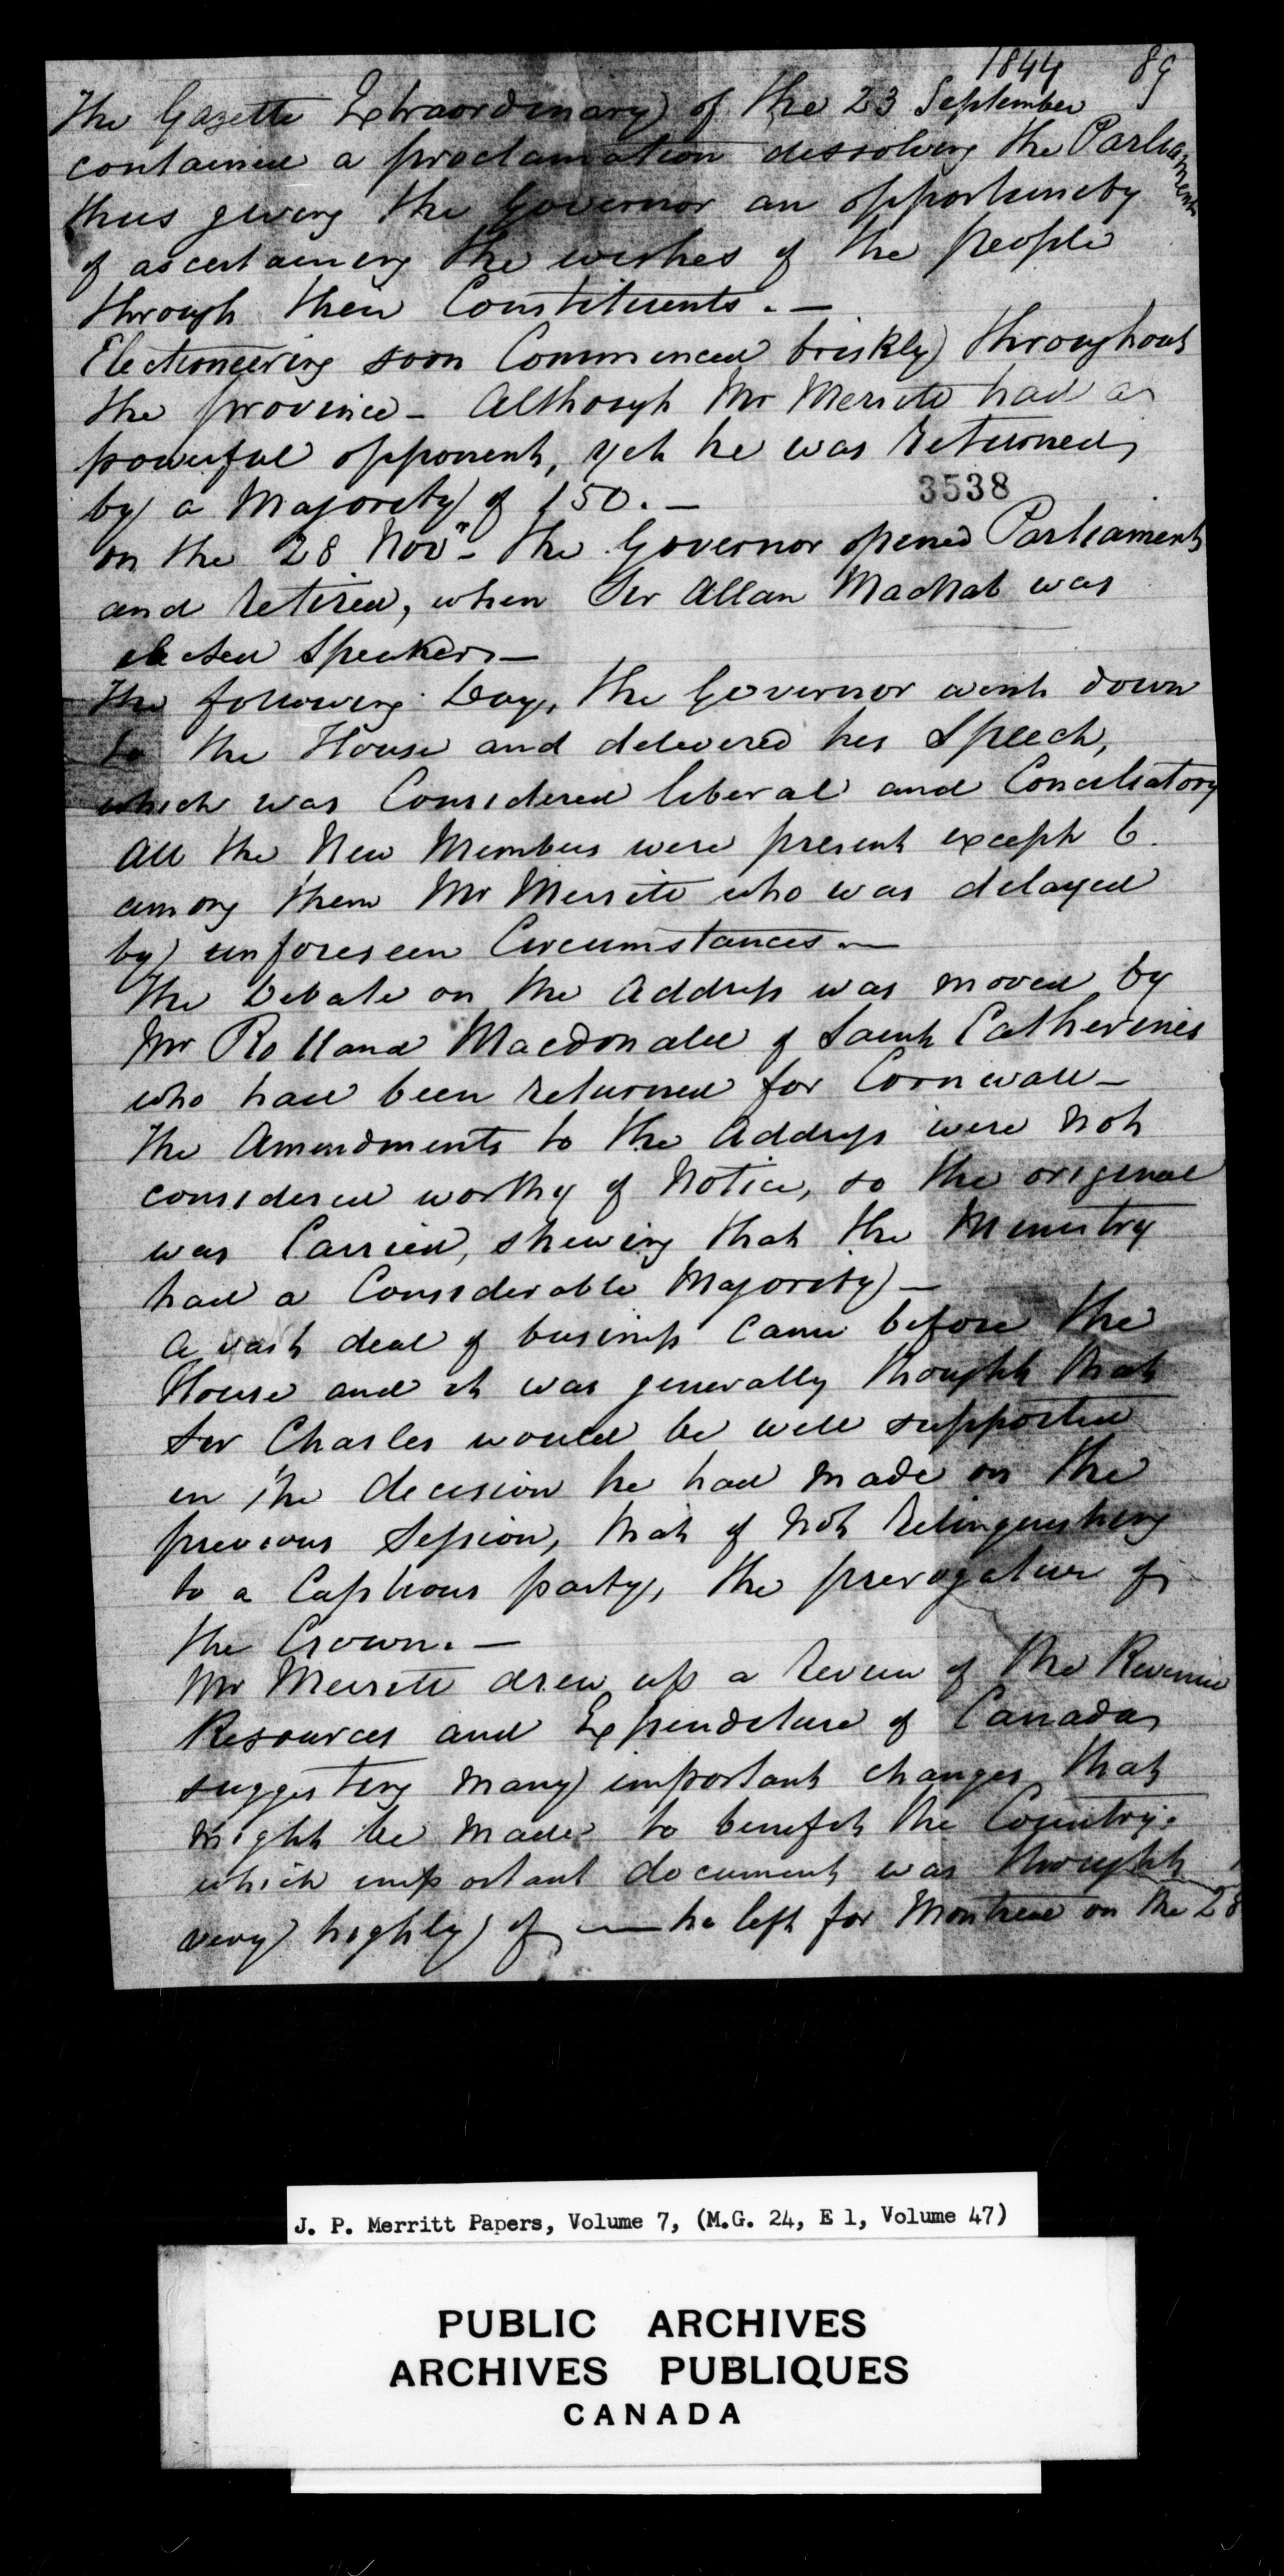 1844 89
The Gazette Extraordinary of the 23 September
contained a proclamation dissolving the Parliament
thus giving the Governor an opportunity
of ascertaining the wishes of the people
through their Constituents. —
Electioneering soon Commenced briskly throughout
the province — Although Mr Merritt had a
powerful opponent, yet he was returned
by a Majority of 150. —
3538
on the 28 Novr - the Governor opened Parliament
and retired, when Sir Allan MacNab was
elected Speaker —
The following Day, the Governor went down
to the House and delivered his Speech,
which was Considered liberal and Conciliatory
All the New Members were present except 6.
among them Mr Merritt who was delayed
by unforeseen Circumstances —
The Debate on the Address was moved by
Mr Rolland Macdonald of Saint Catherines
who had been returned for Cornwall —
The Amendments to the Address were not
considered worthy of Notice, so the original
was Carried, shewing that the Ministry
had a Considerable Majority —
A vast deal of business came before the
House and it was generally thought that
Sir Charles would be well supported
in the decision he had made on the
previous Session, that of not relinquishing
to a Captious party, the prerogative of
the Crown. —
Mr Merritt drew up a review of the Revenue
Resources and Expenditure of Canada
suggesting many important changes that
might be made to benefit the Country.
which important document was thought
very highly of — he left for Montreal on the 28
J. P. Merritt Papers, Volume 7, (M.G. 24, E 1, Volume 47)
PUBLIC ARCHIVES
ARCHIVES PUBLIQUES
CANADA